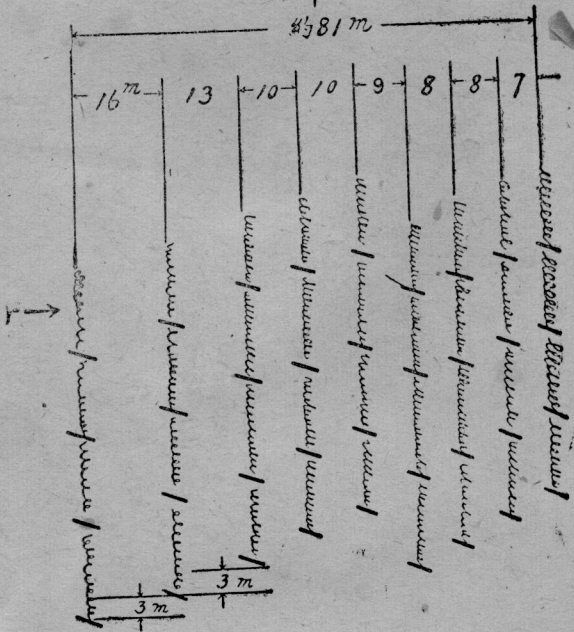 約81 m
16m 13 10 10 9 8 8 7
I
3 m
3 m